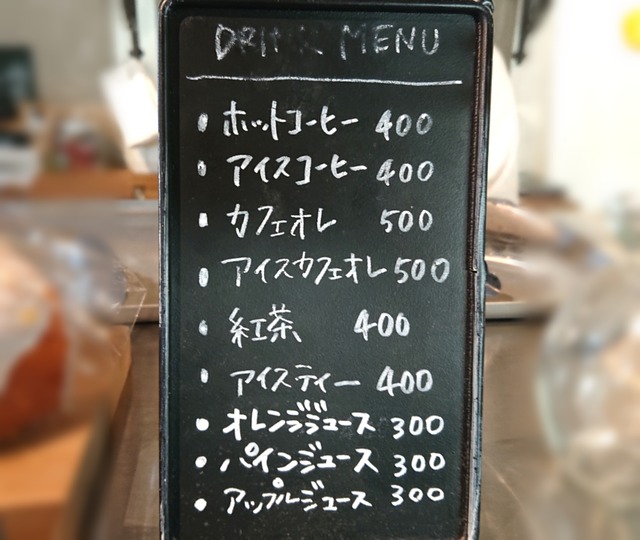 DRINK MENU
・ホットコーヒー 400
・アイスコーヒー 400
・カフェオレ 500
・アイスカフェオレ 500
・紅茶 400
・アイスティー 400
・オレンジジュース 300
・パインジュース 300
・アップルジュース 300